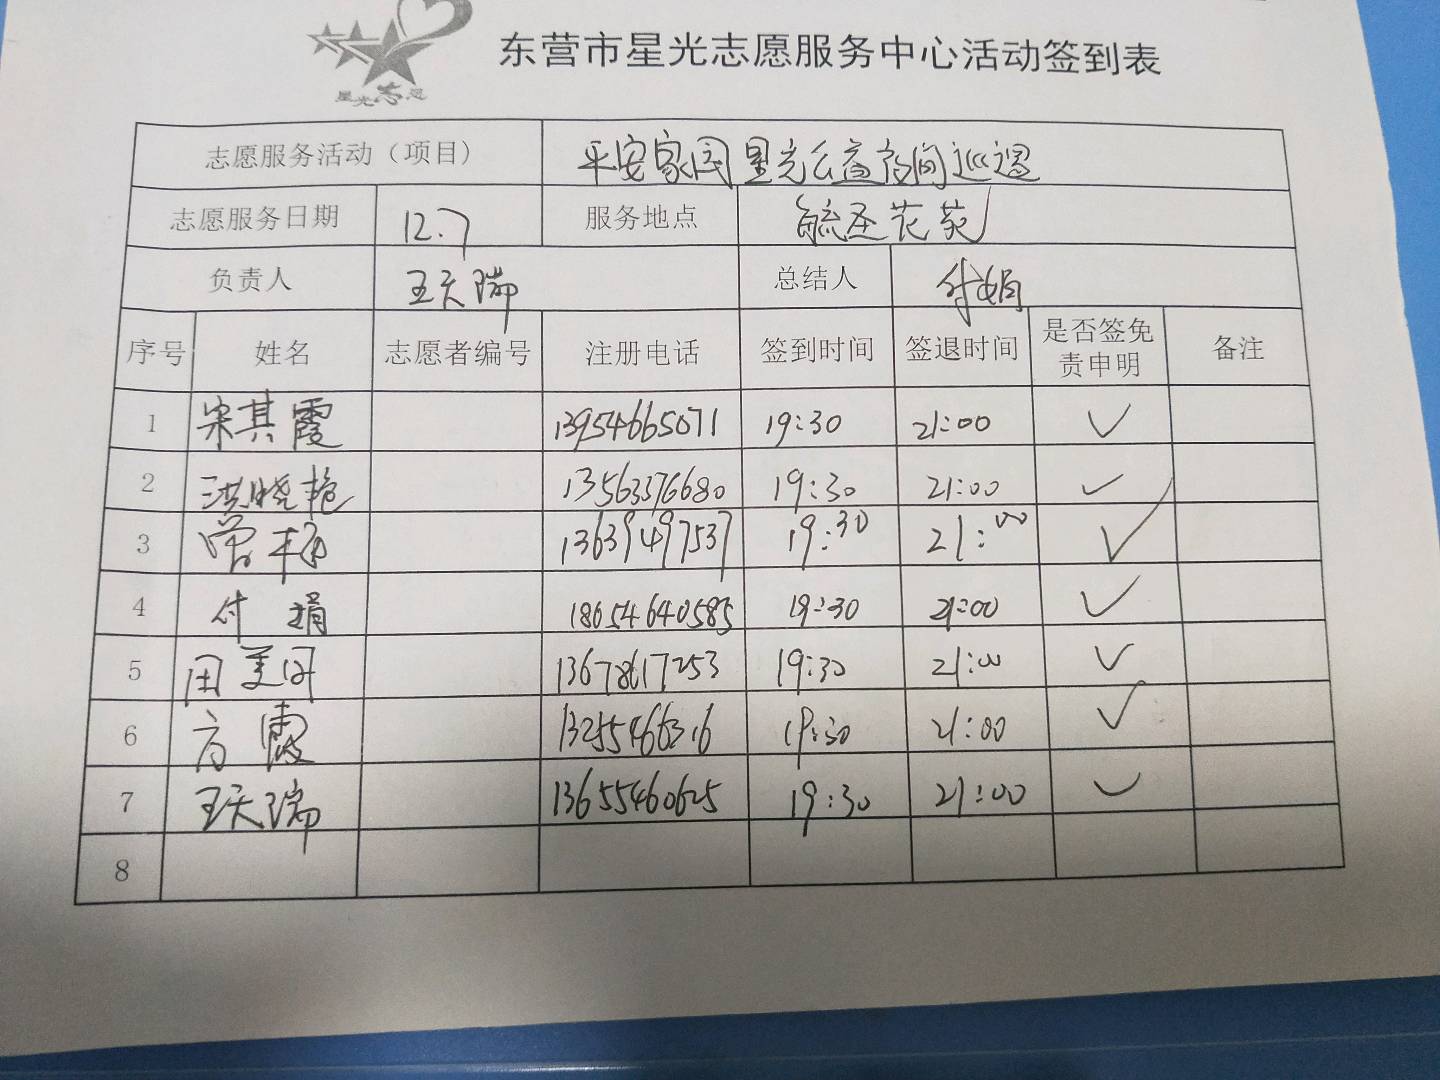 星光志愿
东营市星光志愿服务中心活动签到表
志愿服务活动（项目） 平安家园星光公益夜间巡逻
志愿服务日期 12.7 服务地点 毓圣花苑
负责人 王天瑞 总结人 付娟
序号 姓名 志愿者编号 注册电话 签到时间 签退时间 是否签免责申明 备注
1 宋其霞 13954665071 19:30 21:00 ✓
2 洪晓艳 13563376680 19:30 21:00 ✓
3 曾 13639497537 19:30 21:00 ✓
4 付娟 18654640585 19:30 21:00 ✓
5 田美丹 13678617253 19:30 21:00 ✓
6 方霞 13255466316 19:30 21:00 ✓
7 王天瑞 13655460625 19:30 21:00 ✓
8